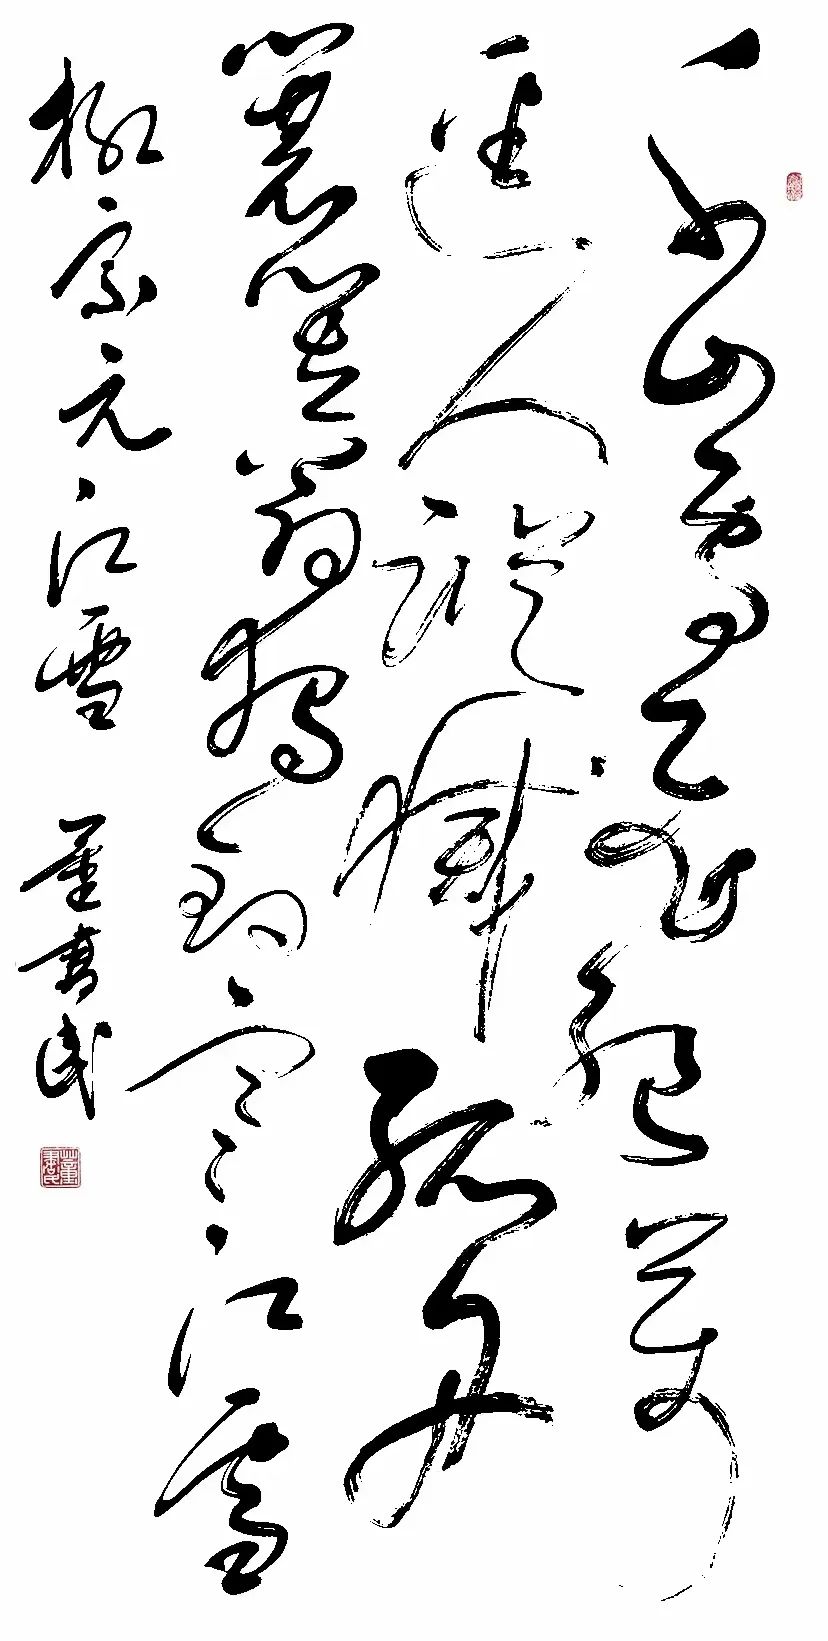 千山鳥飛絕萬
逕人蹤滅孤舟
蓑笠翁獨釣寒江雪
柳宗元江雪 董書民
董書民